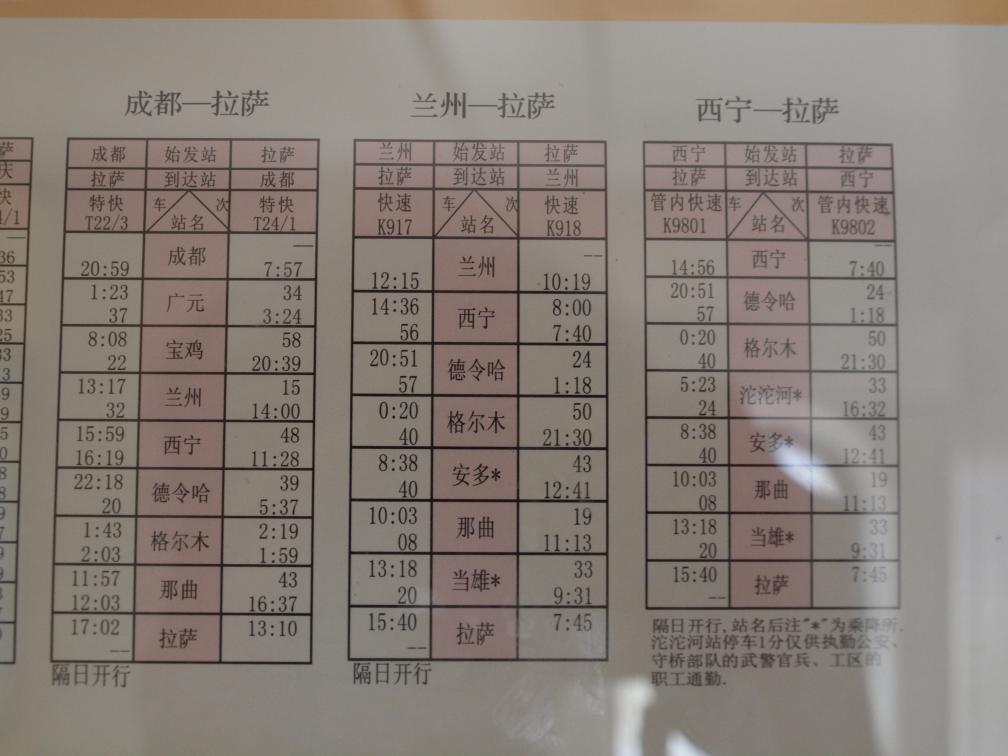 萨
庆
快
4/1
36
53
47
33
25
33
成都—拉萨
成都 始发站 拉萨
拉萨 到达站 成都
特快 车 次 特快
T22/3 站名 T24/1
成都 —
20:59 7:57
1:23 广元 34
37 3:24
8:08 宝鸡 58
22 20:39
13:17 兰州 15
32 14:00
15:59 西宁 48
16:19 11:28
22:18 德令哈 39
20 5:37
1:43 格尔木 2:19
2:03 1:59
11:57 那曲 43
12:03 16:37
17:02 拉萨 13:10
--
隔日开行
兰州—拉萨
兰州 始发站 拉萨
拉萨 到达站 兰州
快速 车 次 快速
K917 站名 K918
兰州 --
12:15 10:19
14:36 西宁 8:00
56 7:40
20:51 德令哈 24
57 1:18
0:20 格尔木 50
40 21:30
8:38 安多* 43
40 12:41
10:03 那曲 19
08 11:13
13:18 当雄* 33
20 9:31
15:40 拉萨 7:45
--
隔日开行
西宁—拉萨
西宁 始发站 拉萨
拉萨 到达站 西宁
管内快速 车 次 管内快速
K9801 站名 K9802
西宁 --
14:56 7:40
20:51 德令哈 24
57 1:18
0:20 格尔木 50
40 21:30
5:23 沱沱河* 33
24 16:32
8:38 安多* 43
40 12:41
10:03 那曲 19
08 11:13
13:18 当雄* 33
20 9:31
15:40 拉萨 7:45
--
隔日开行,站名后注"*"为乘降所,
沱沱河站停车1分仅供执勤公安、
守桥部队的武警官兵、工区的
职工通勤.